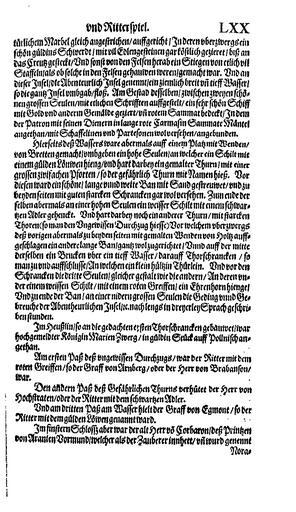 vnd Ritterspiel. LXX
türlichem Marbel gleich angestrichen/auffgericht/In deren vberzwerg ein
schön güldins Schwerdt/mit vil Edelgesteinen gar köstlich gezieret/biß an
das Creutz gesteckt/Vnd sonst von den Felsen herab ein Stiegen von etlich vil
Staffeln/als ob solche in den Felsen gehauwen weren/gemacht war. Vnd an
dieser Insel/die Abenteurlich Insel genennt/ein zimlich breit vñ tieff Wasser/
so die gantz Insel vmbgab/floß. Am Gestad desselben/zwischen zweyen schö-
nen grossen Seulen/mit etlichen Schrifften auffgesetzt/ein sehr schön Schiff
mit Gold vnd anderm Gemälde geziert/mit rotem Sammat bedeckt/In dem
der Patron mit seinen Dienern in lange rote Carmasin Sammate Mäntel
angethan/mit Schaffelinen vnd Partesonen wol versehen/angebunden.
Hierseits deß Wassers ware abermals auff einem Platz mit Wenden/
von Bretten gemacht/vmbgeben ein hohe Seulen/an welcher ein Schilt mit
einem gülden Löwen hieng/vnd hart darbey ein gemalter Thurn/mit einer
grossen zwifachen Pforten/so der gefährlich Thurn mit Namen hieß. Vor
diesen ward ein schöne/lange vnnd weite Ban mit Sand gestreuwet/vnd zu
beyden seiten mit guten starcken Schrancken gar wol versehen. Zum ende der
selben abermals an einer hohen Seulen ein weisser Schilt mit einem schwar-
tzen Adler gehenckt. Vnd hart darbey noch ein anderer Thurn/mit starcken
Thoren/so man den Vngewissen Durchzug hiesse/Vor welchem vberzwerg
deß vorigen abermals zu beyden seiten mit gemalten Wenden von Holtz auff-
geschlagen ein ander lange Ban/gantz wol zugerichtet/Vnnd auff der mitte
derselben ein Brucken vber ein tieff Wasser/darauff Thorschrancken/so
man zu vnd auffschlusse/An welchen ein klein hültzin Thürlein. Vnd vor den
Schrancken die dritte Seulen/gleicher gestalt wie die andern/An deren von
der einem weissen Schilt/mit einem roten Greiffen/ein Ehrenhorn hienge/
Vnd zu ende der Ban/an einer nidern grossen Seulen die Geding vnnd Ge-
breuche der Abenteurlichen Insel/znach lengs in dreyerley Sprach geschri-
ben stunden.
Im Heußlin/so am die gedachten ersten Thorschrancken gebauwet/war
hochgemelter Königin Marien Zwerg/in güldin Stück auff Polnisch an-
gethan.
Am ersten Paß deß vngewissen Durchzugs/war der Ritter mit dem
roten Greiffen/so der Graff von Arnberg/oder der Herr von Brabanson/
war.
Den andern Paß deß Gefährlichen Thurns verhütet der Herr von
Hochstraten/oder der Ritter mit dem schwartzen Adler.
Vnd am dritten Paß am Wasser hielt der Graff von Egmont/so der
Ritter mit dem gülden Löwen genannt ward.
Im finstern Schloß aber war der alt Herr võ Corbaron/deß Printzen
von Araulen Vormund/welcher als der Zauberer innhett/vñ ward genennt
Nora-